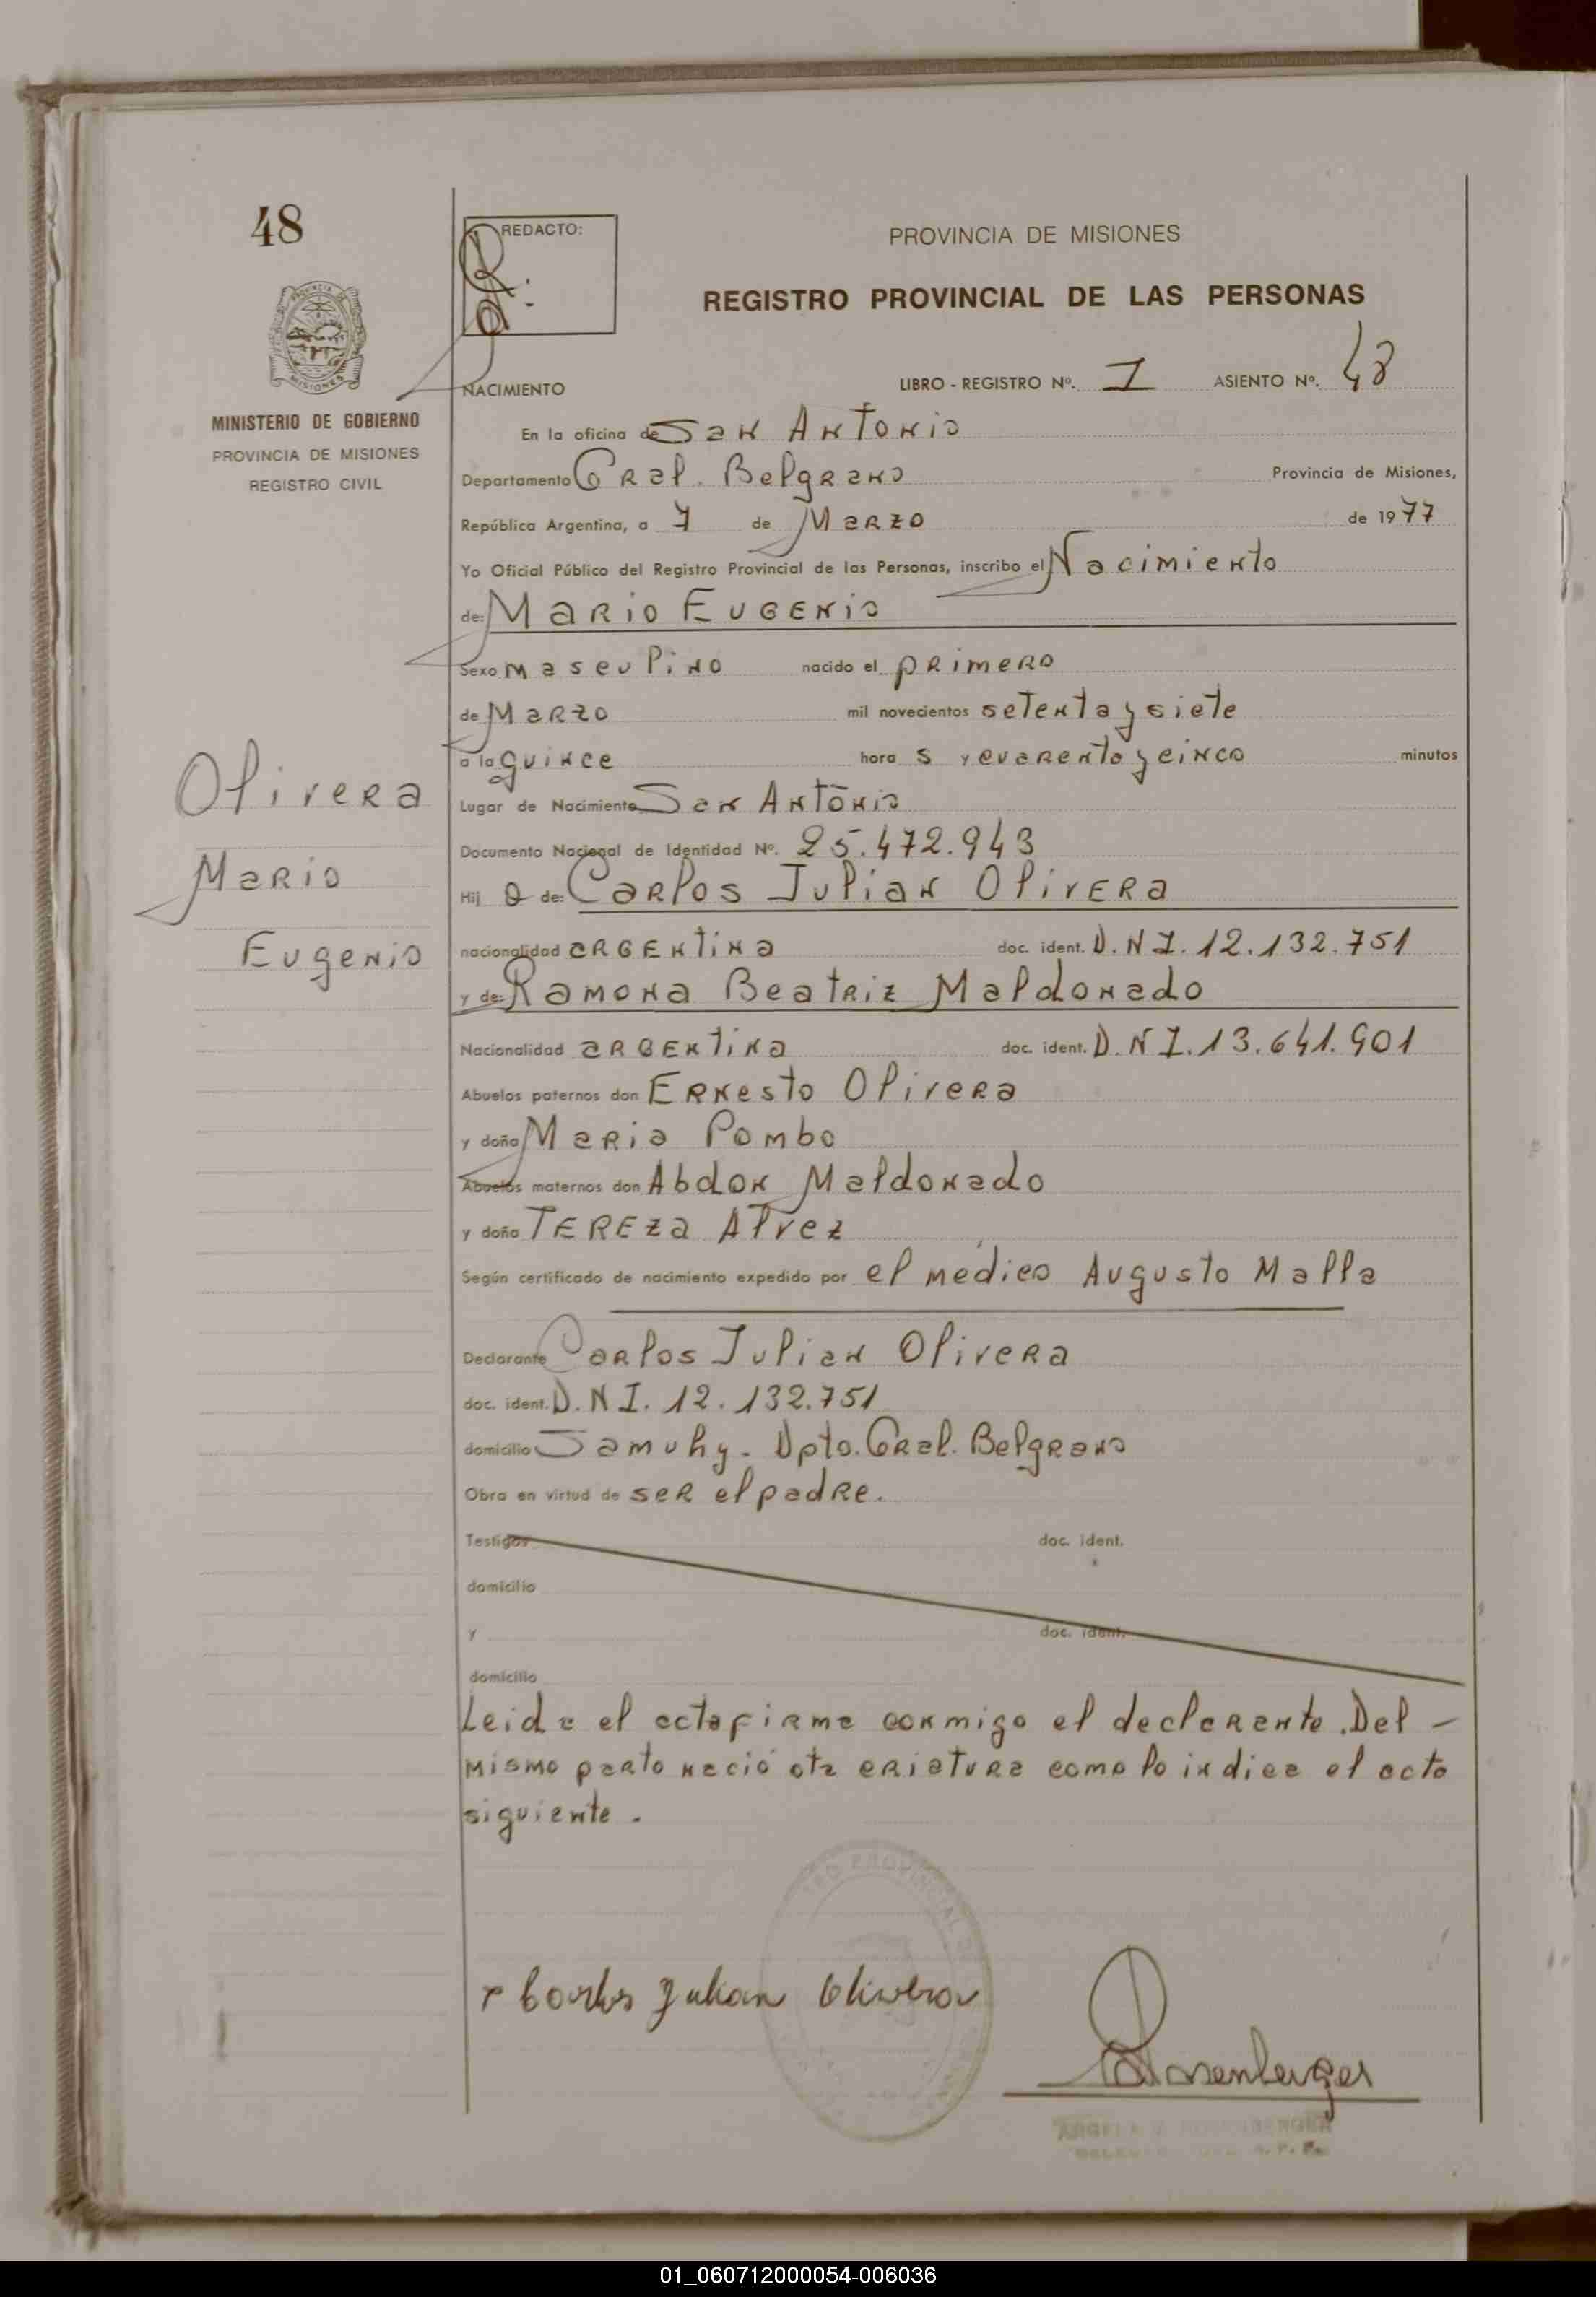 48
REDACTO:
PROVINCIA DE MISIONES
REGISTRO PROVINCIAL DE LAS PERSONAS
PROVINCIA DE
MISIONES
MINISTERIO DE GOBIERNO
PROVINCIA DE MISIONES
REGISTRO CIVIL
NACIMIENTO
LIBRO - REGISTRO Nº. I ASIENTO Nº. 48
En la oficina de San Antonio
Departamento Gral. Belgrano Provincia de Misiones,
República Argentina, a 7 de Marzo de 1977
Yo Oficial Público del Registro Provincial de las Personas, inscribo el Nacimiento
de: Mario Eugenio
Sexo masculino nacido el primero
de Marzo mil novecientos setenta y siete
a la quince hora s y cuarenta y cinco minutos
Olivera
Mario
Eugenio
Lugar de Nacimiento San Antonio
Documento Nacional de Identidad Nº. 25.472.943
Hij o de: Carlos Julian Olivera
nacionalidad argentina doc. ident. D.N I. 12.132.751
y de: Ramona Beatriz Maldonado
Nacionalidad argentina doc. ident. D.N I. 13.641.901
Abuelos paternos don Ernesto Olivera
y doña Maria Pombo
Abuelos maternos don Abdon Maldonado
y doña Tereza Alvez
Según certificado de nacimiento expedido por el médico Augusto Malla
Declarante Carlos Julian Olivera
doc. ident. D.N I. 12.132.751
domicilio Samuhy. Dpto. Gral. Belgrano
Obra en virtud de ser el padre.
Testigos doc. ident.
domicilio
y doc. ident.
domicilio
Leida el acta firma conmigo el declarante. Del -
mismo parto nació ota criatura como lo indica el acta
siguiente.
Carlos Julian Olivera
Rosenberger
01_060712000054-006036